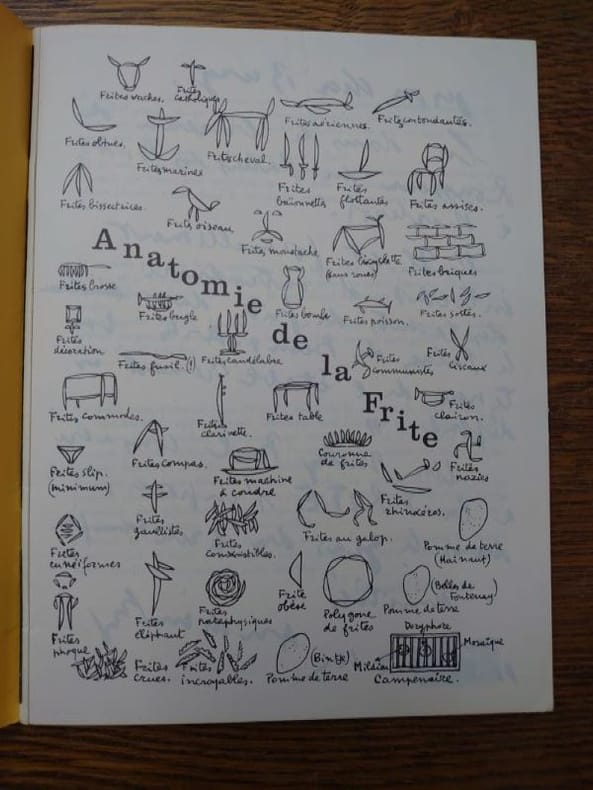 Frites vaches.
Frites
catholiques
Frites obtues.
Frites marines
Frites cheval.
Frites aériennes.
Frites contondantes.
Frites bissectrices.
Frites oiseau
Frites
baïonnettes
Frites
flottantes
Frites assises.
Frites moustache
Frites bicyclette
(sans roues)
Frites briques
Anatomie de la Frite
Frites brosse
Frites bugle
Frites bombe
Frites poisson.
Frites sottes.
Frites
décoration
Frites fusil.(!)
Frites candélabre
Frites
communistes
Frites
Ciseaux
Frites commodes.
Frites
clarinette.
Frites table
Frites
clairon.
Frites slip.
(minimum)
Frites compas.
Frites machine
à coudre
Couronne
de frites
Frites
rhinocéros.
Frites
nazies
Frites
cunéiformes
Frites
gaullistes
Frites
comestibles.
Frites au galop.
Pomme de terre
(Hainaut)
Frites
phoque
Frites
éléphant
Frites
pataphysiques
Frite
obèse
Polygone
de frites
Pomme de terre
(Belles de
Fontenay)
Frites
crues.
Frites
incroyables.
Pomme de terre
(Bintje)
Doryphore
Mildiou
Mosaïque
Campenaire.